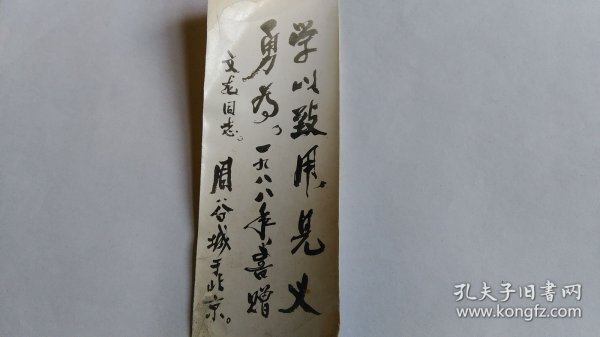 学以致用,见义
勇为。一九八八年喜赠
文龙同志。
周谷城于北京。
孔夫子旧书网
www.kongfz.com